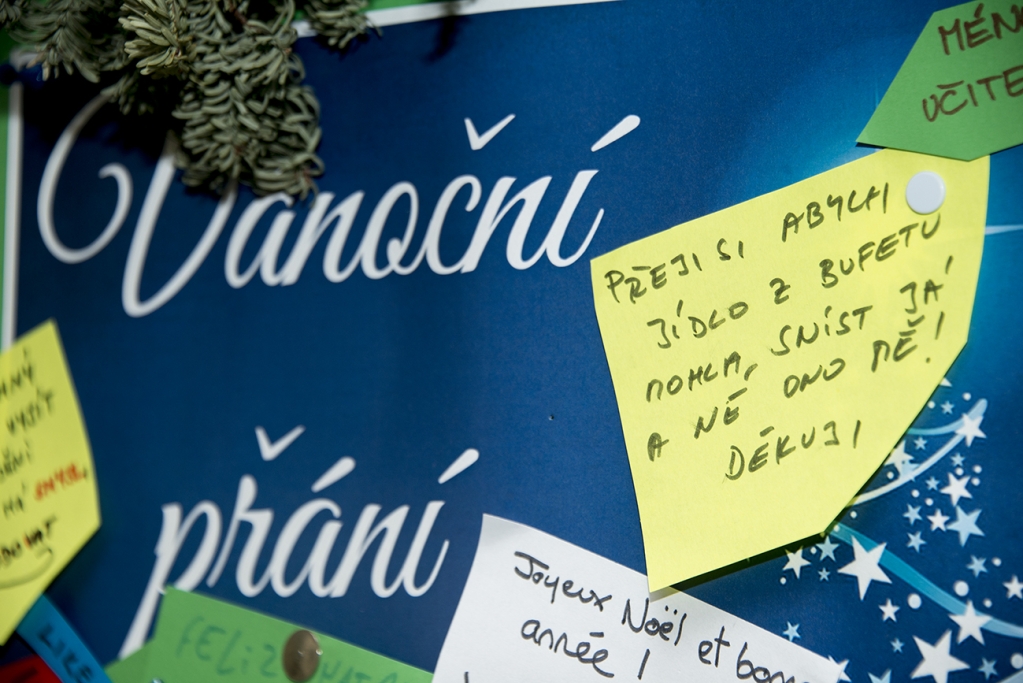 Vánoční
přání
MÉN
UČITE
PŘEJI SI ABYCH
JÍDLO Z BUFETU
MOHLA, SNÍST JÁ
A NĚ ONO MĚ!
DĚKUJI
Joyeux Noël et bonn
année !
FELIZ NATA
LIZE